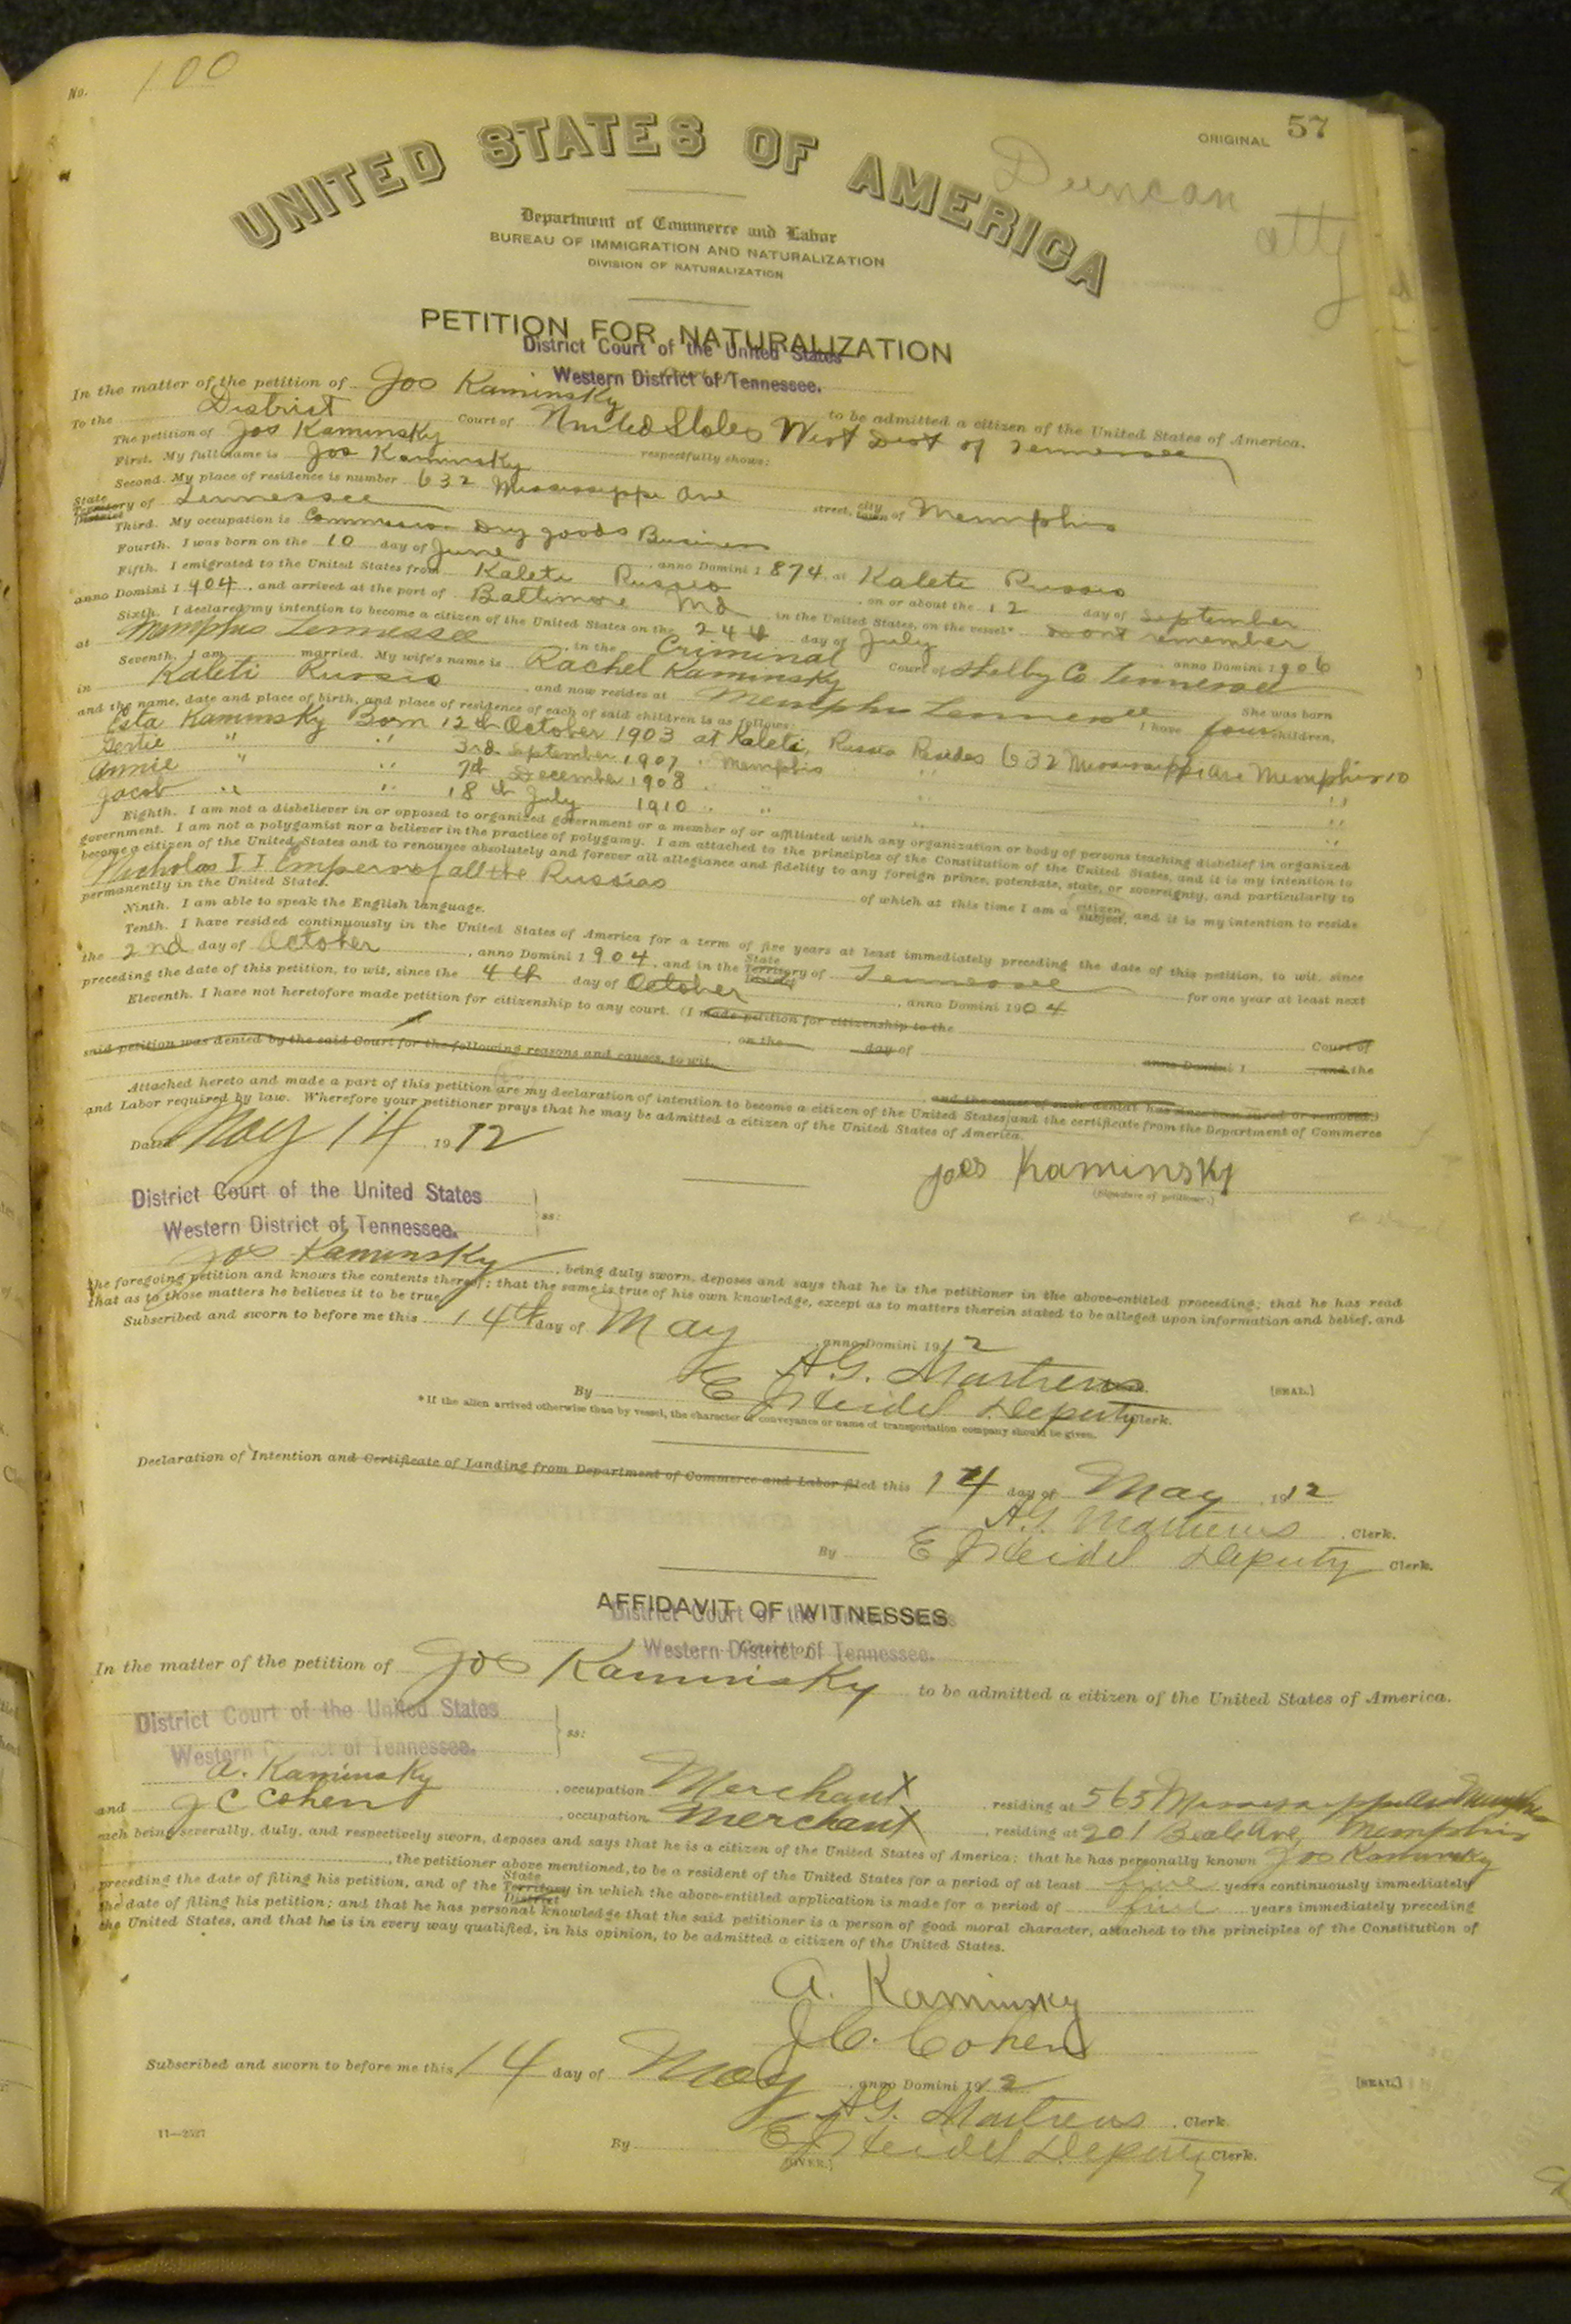 No. 100
ORIGINAL 57
Duncan
atty
UNITED STATES OF AMERICA
Department of Commerce and Labor
BUREAU OF IMMIGRATION AND NATURALIZATION
DIVISION OF NATURALIZATION
PETITION FOR NATURALIZATION
District Court of the United States
Western District of Tennessee.
In the matter of the petition of Jos Kaminsky to be admitted a citizen of the United States of America.
To the District Court of United States West Dist of Tennessee
The petition of Jos Kaminsky respectfully shows:
First. My full name is Jos Kaminsky
Second. My place of residence is number 632 Mississippi Ave street, city town of Memphis
State Territory District of Tennessee
Third. My occupation is Dry goods Business
Fourth. I was born on the 10 day of June, anno Domini 1874, at Kaleti Russia
Fifth. I emigrated to the United States from Kaleti Russia, on or about the 12 day of September
anno Domini 1904, and arrived at the port of Baltimore Md in the United States, on the vessel* dont remember
Sixth. I declared my intention to become a citizen of the United States on the 24th day of July anno Domini 1906
at Memphis Tennessee, in the Criminal Court of Shelby Co Tennessee
Seventh. I am married. My wife's name is Rachel Kaminsky She was born
in Kaleti Russia, and now resides at Memphis Tennessee I have four children,
and the name, date and place of birth, and place of residence of each of said children is as follows:
Esta Kaminsky Born 12th October 1903 at Kaleti, Russia Resides 632 Mississippi Ave Memphis
Gertie " " 3rd September 1907 " Memphis " "
Annie " " 7th December 1908 " " " "
Jacob " " 18th July 1910 " " " "
Eighth. I am not a disbeliever in or opposed to organized government or a member of or affiliated with any organization or body of persons teaching disbelief in organized
government. I am not a polygamist nor a believer in the practice of polygamy. I am attached to the principles of the Constitution of the United States, and it is my intention to
become a citizen of the United States and to renounce absolutely and forever all allegiance and fidelity to any foreign prince, potentate, state, or sovereignty, and particularly to
Nicholas II Emperor of all the Russias of which at this time I am a citizen subject, and it is my intention to reside
permanently in the United States.
Ninth. I am able to speak the English language.
Tenth. I have resided continuously in the United States of America for a term of five years at least immediately preceding the date of this petition, to wit, since
the 2nd day of October, anno Domini 1904, and in the State Territory District of Tennessee for one year at least next
preceding the date of this petition, to wit, since the 4th day of October, anno Domini 1904
Eleventh. I have not heretofore made petition for citizenship to any court. (I made petition for citizenship to the
Court of
at, on the day of anno Domini 1 and the
said petition was denied by the said Court for the following reasons and causes, to wit,
and the cause of such denial has since been cured or removed.)
Attached hereto and made a part of this petition are my declaration of intention to become a citizen of the United States and the certificate from the Department of Commerce
and Labor required by law. Wherefore your petitioner prays that he may be admitted a citizen of the United States of America.
Dated May 14, 1912
Joes Kaminsky
(Signature of petitioner.)
District Court of the United States
Western District of Tennessee. ss:
Jos Kaminsky, being duly sworn, deposes and says that he is the petitioner in the above-entitled proceeding; that he has read
the foregoing petition and knows the contents thereof; that the same is true of his own knowledge, except as to matters therein stated to be alleged upon information and belief, and
that as to those matters he believes it to be true.
Subscribed and sworn to before me this 14th day of May, anno Domini 1912
A.G. Matthews
[SEAL.]
By Deputy Clerk.
*If the alien arrived otherwise than by vessel, the character of conveyance or name of transportation company should be given.
Declaration of Intention and Certificate of Landing from Department of Commerce and Labor filed this 14 day of May, 1912
A.G. Matthews, Clerk.
By Deputy Clerk.
AFFIDAVIT OF WITNESSES
District Court of the United States
Western District of Tennessee.
In the matter of the petition of Jos Kaminsky to be admitted a citizen of the United States of America.
District Court of the United States
Western District of Tennessee. ss:
A. Kaminsky, occupation Merchant, residing at 565 Mississippi Ave Memphis
and J C Cohen, occupation Merchant, residing at 201 Beale Ave, Memphis
each being severally, duly, and respectively sworn, deposes and says that he is a citizen of the United States of America; that he has personally known Jos Kaminsky
, the petitioner above mentioned, to be a resident of the United States for a period of at least five years continuously immediately
preceding the date of filing his petition, and of the State Territory District in which the above-entitled application is made for a period of five years immediately preceding
the date of filing his petition; and that he has personal knowledge that the said petitioner is a person of good moral character, attached to the principles of the Constitution of
the United States, and that he is in every way qualified, in his opinion, to be admitted a citizen of the United States.
A. Kaminsky
J.C. Cohen
Subscribed and sworn to before me this 14 day of May, anno Domini 1912
[SEAL.]
A.G. Matthews, Clerk.
11—2527
By Deputy Clerk.
(OVER.)